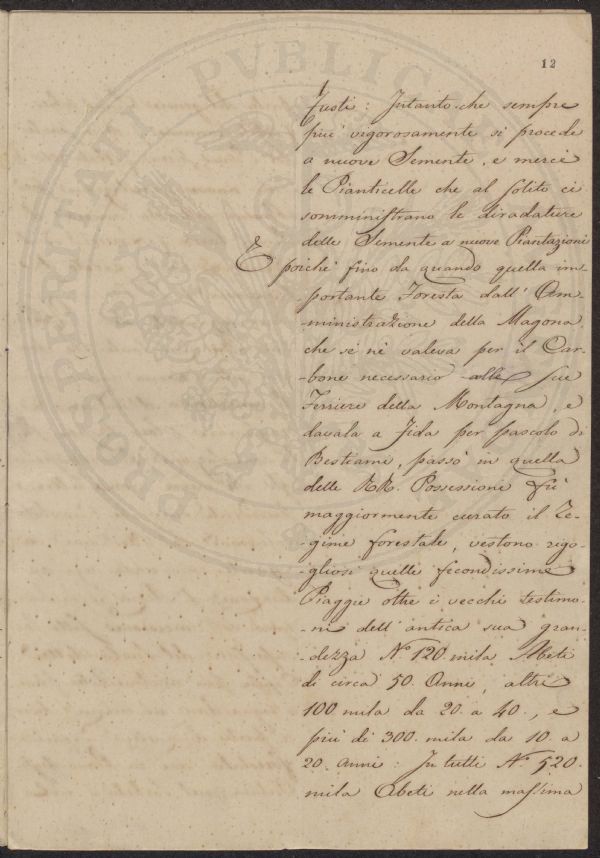 12
Fusti: Intanto che sempre
piu' vigorosamente si procede
a nuove Semente, e mercè
le Pianticelle che al solito ci
somministrano le diradature
delle Semente a nuove Piantazioni
E poichè fino da quando quella im-
-portante Foresta dall' Am-
-ministrazione della Magona
che se nè valeva per il Car-
-bone necessario alle sue
Ferriere della Montagna, e
davala a Fida per pascolo di
Bestiame, passò in quella
delle RR. Possessione fù
maggiormente curato il Re-
-gime forestale, vestono rigo-
-gliosi quelle fecondissime
Piaggie oltre i vecchi testimo-
-ni dell' antica sua gran-
-dezza N.° 120. mila Abeti
di circa 50. Anni, altri
100 mila da 20. a 40., e
più di 300. mila da 10. a
20. anni: In tutti N.° 520.
mila Abeti nella massima
PROSPERITATI PUBLICAE